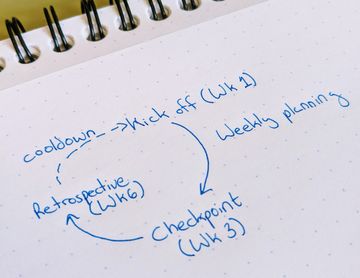 cooldown
Kick off (Wk 1)
Weekly planning
Checkpoint
(Wk 3)
Retrospective
(Wk6)